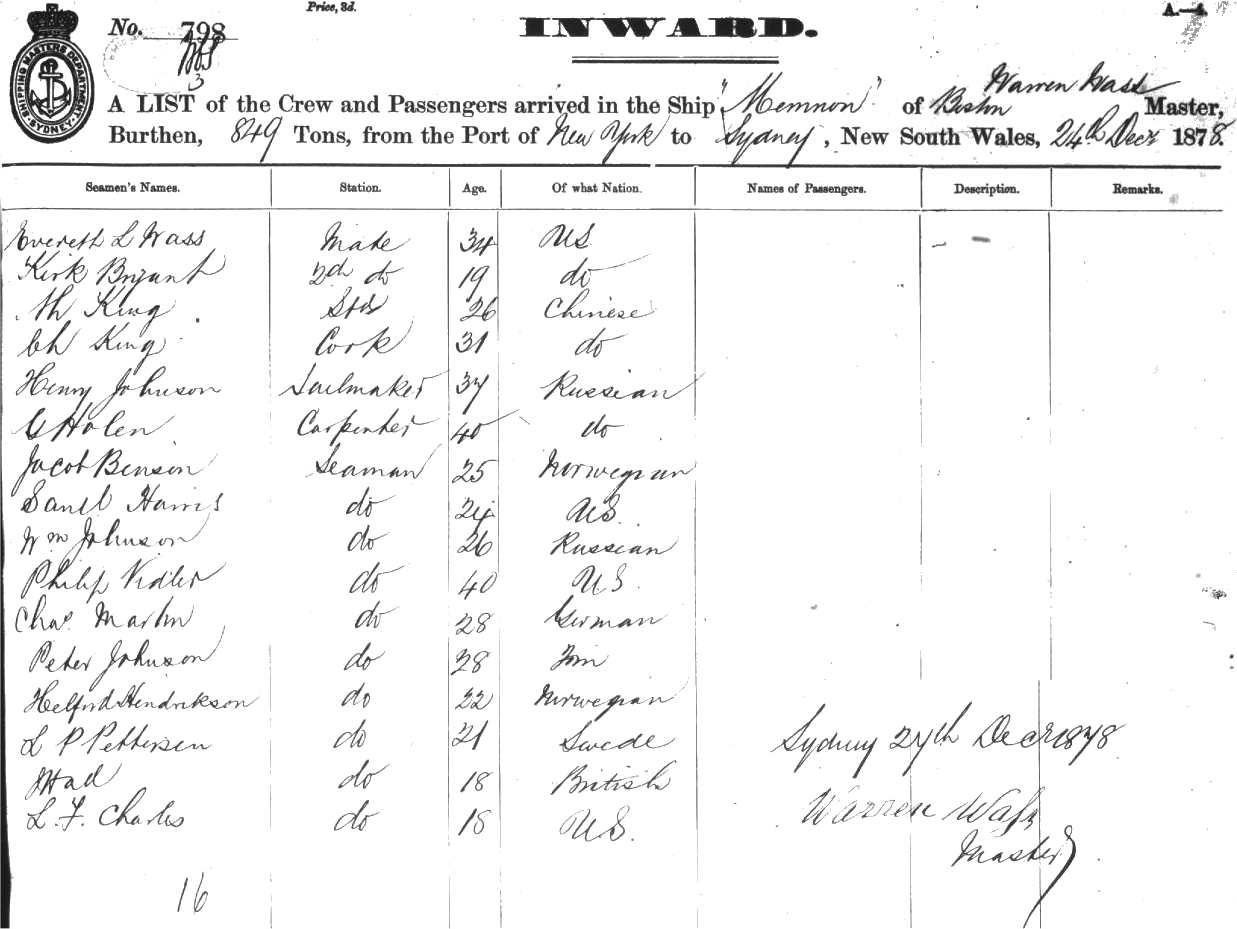 Price, 3d.
No. 798
INWARD.
SHIPPING MASTERS DEPARTMENT SYDNEY
3
Warren Wass
A LIST of the Crew and Passengers arrived in the Ship "Memnon" of Boston Master,
Burthen, 849 Tons, from the Port of New York to Sydney, New South Wales, 24th Decr 1878.
Seamen's Names. Station. Age. Of what Nation. Names of Passengers. Description. Remarks.
Evereth L Wass Mate 34 US
Kirk Bryant 2d do 19 do
Ah King Std 26 Chinese
Ch King Cook 31 do
Henry Johnson Sailmaker 37 Russian
G Holen Carpenter 40 do
Jacob Benson Seaman 25 Norwegian
Saml Harris do 24 US.
Wm Johnson do 26 Russian
Philip Vidler do 40 US.
Chas. Martin do 28 German
Peter Johnson do 28 Fin
Helford Hendrikson do 22 Norwegian
L P Pettersen do 21 Swede
Sydney 27th Decr 1878
do 18 British
L. F. Charles do 18 US.
Warren Wass
Master
16